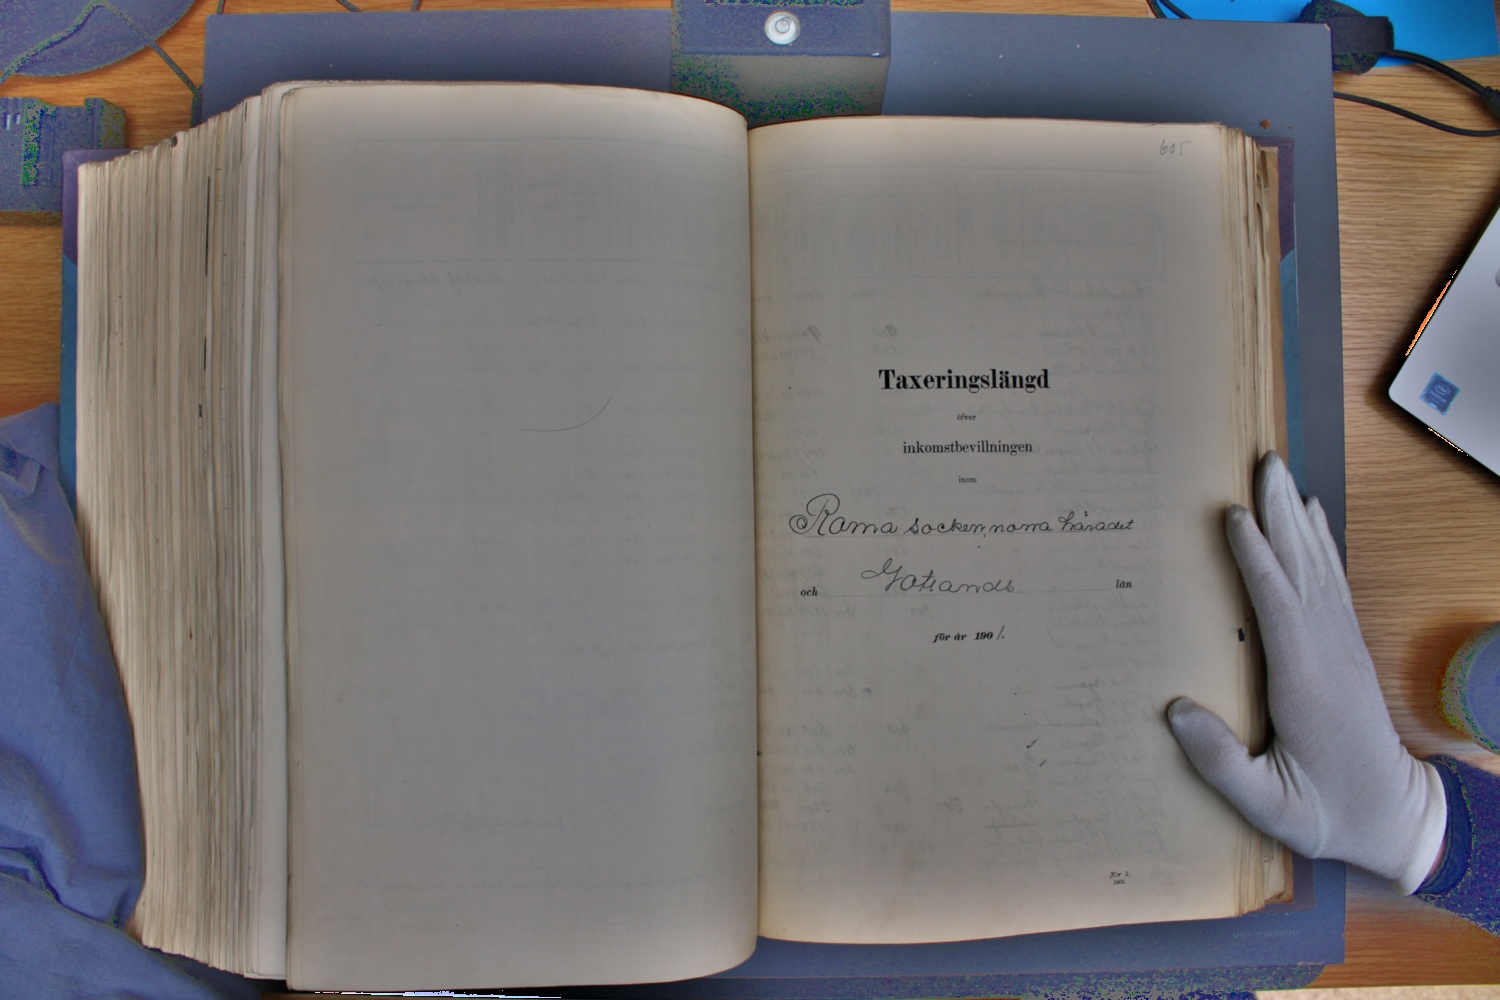 605
Taxeringslängd
öfver
inkomstbevillningen
inom
Roma socken, norra häradet
och Gotlands län
för år 1901.
N:r 3.
1901.